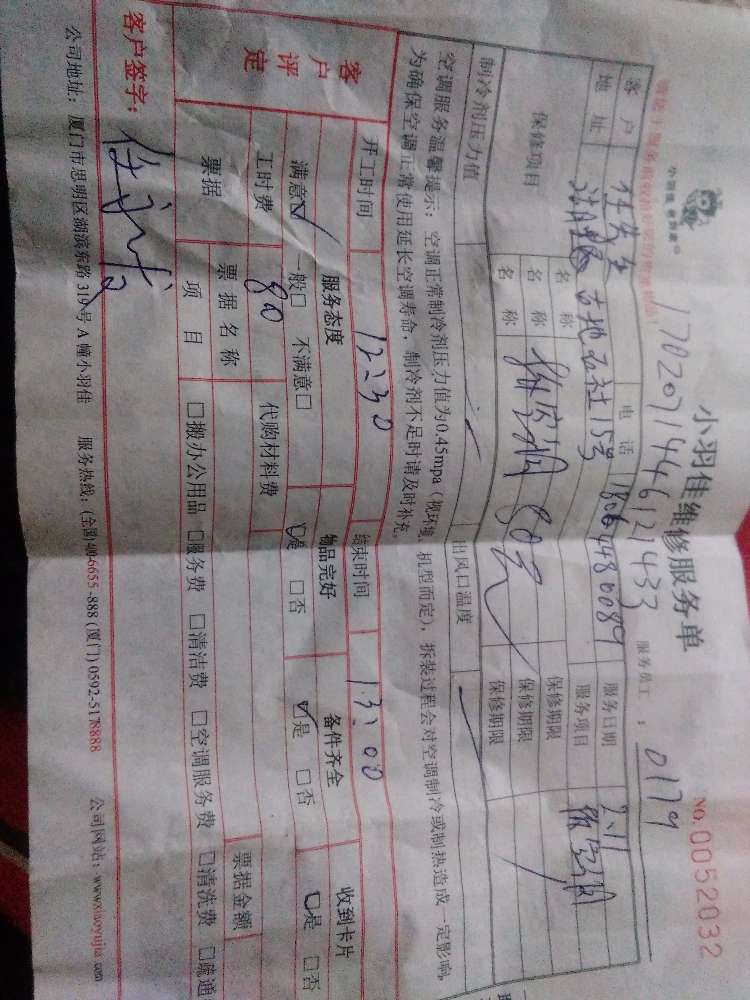 小羽佳 世界家
小羽佳维修服务单
NO. 0052032
1702071446121433
服务员工: 0179
客户 任先生 电话 18064480089 服务日期 2.11
地址 古地石社15号 服务项目
保修项目 名称 保修期限
名称 拆空调 80元 保修期限
名称 保修期限
制冷剂压力值 出风口温度
空调服务温馨提示:空调正常制冷剂压力值为0.45mpa(视环境、机型而定),拆装过程会对空调制冷或制热造成一定影响,
为确保空调正常使用延长空调寿命,制冷剂不足时请及时补充。
开工时间 12:30 结束时间 13:00
客户评定 服务态度 物品完好 备件齐全 收到卡片
满意☑ 一般□ 不满意□ ☑是 □否 ☑是 □否 ☑是 □否
工时费 80 代购材料费
票据 票据名称 票据金额
项目 □搬办公用品 □服务费 □清洁费 □空调服务费 □清洗费 □疏通
客户签字:
公司地址:厦门市思明区湖滨东路319号A幢小羽佳 服务热线:(全国)400-6655-888 (厦门) 0592-5178888 公司网站:www.xiaoyujia.com